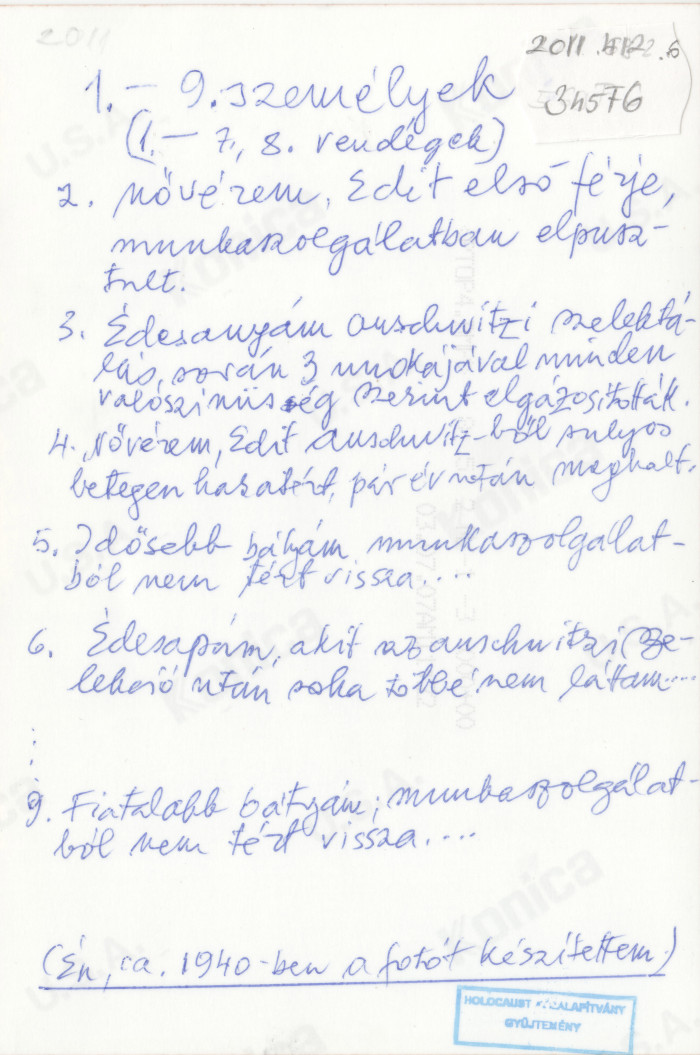 2011
2011.
34576
1. – 9. személyek
(1. – 7, 8. vendégek)
2. Nővérem, Edit első férje,
munkaszolgálatban elpusz-
tult.
3. Édesanyám auschwitzi szelektá-
lás, során 3 unokájával minden
valószinüség szerint elgázosították.
4. Nővérem, Edit Auschwitz-ből sulyos
betegen hazatért, pár év után meghalt.
5. Idősebb bátyám munkaszolgálat-
ból nem tért vissza....
6. Édesapám, akit az auschwitzi sze-
lekció után soha többé nem láttam....
9. Fiatalabb bátyám, munkaszolgálat-
ból nem tért vissza....
(Én, ca. 1940-ben a fotót készítettem.)
HOLOCAUST KÖZALAPÍTVÁNY
GYŰJTEMÉNY
Konica
U.S.A.